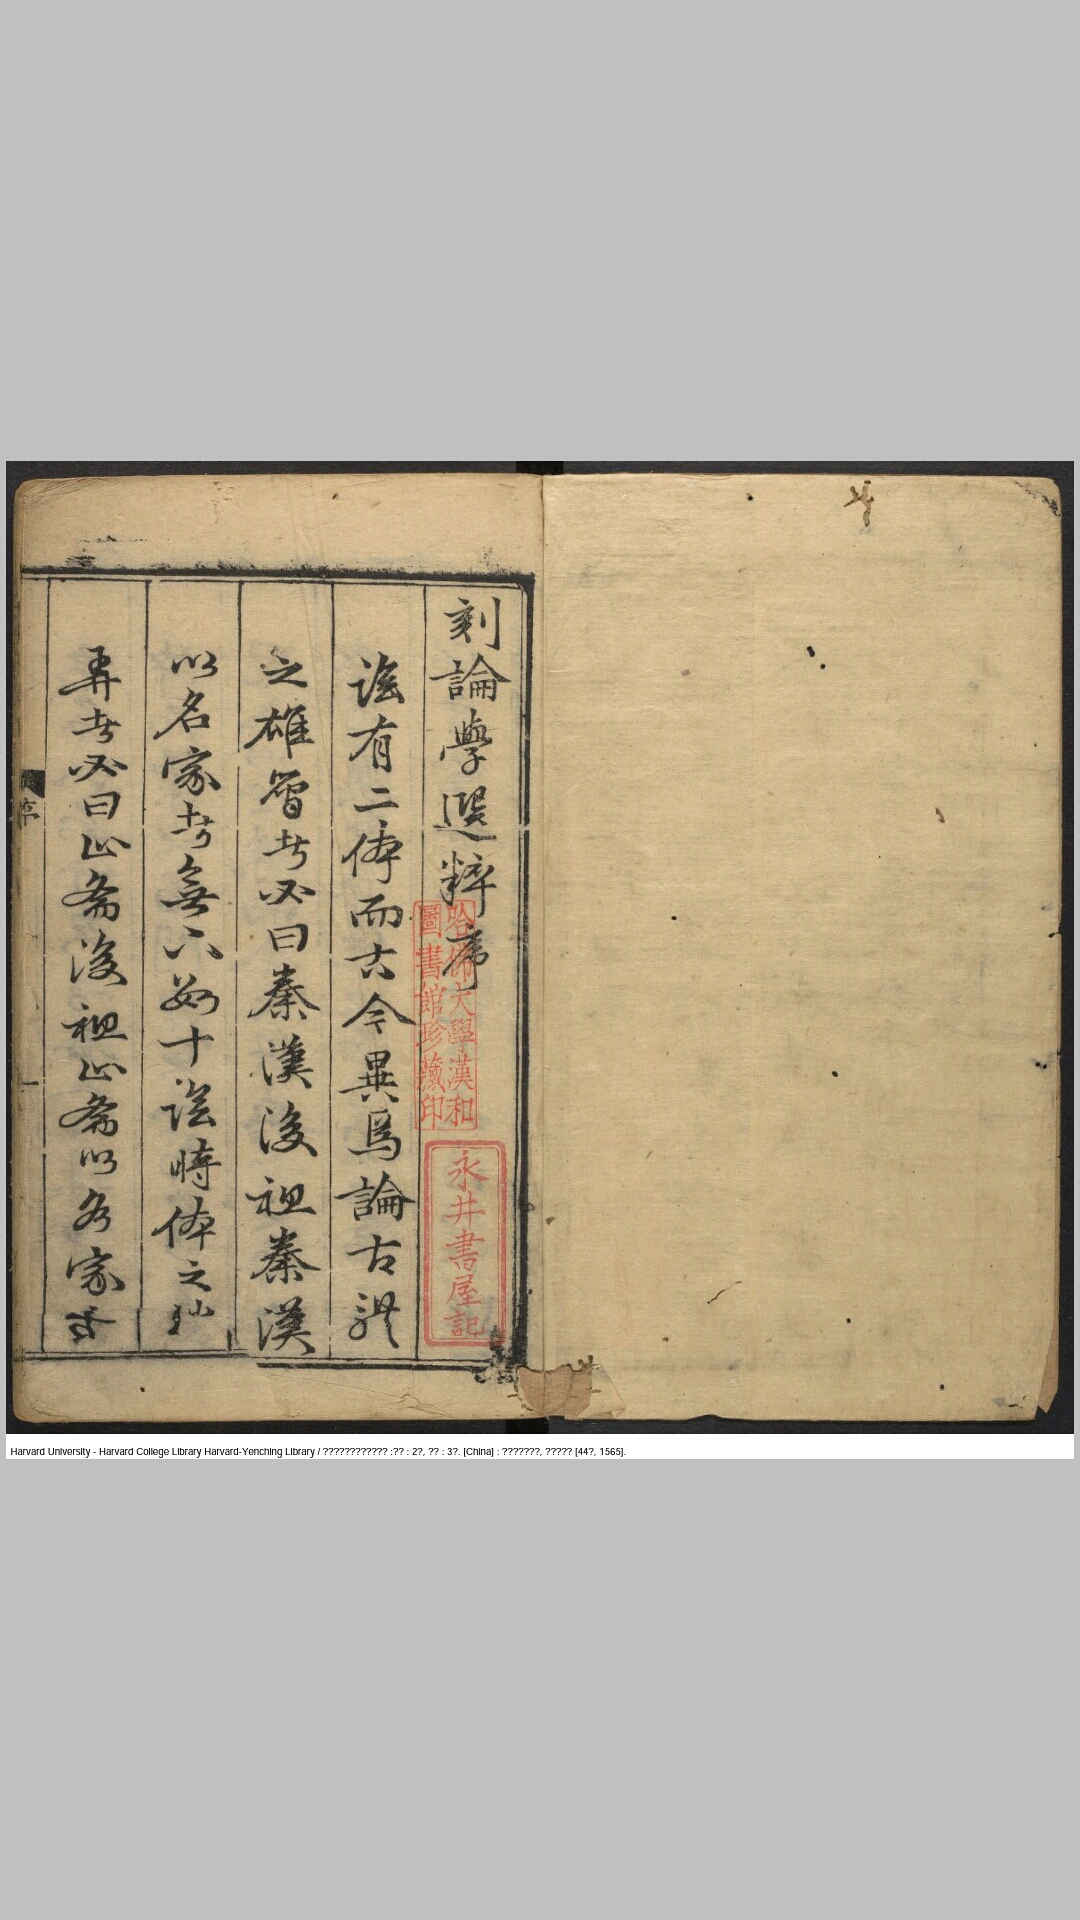 刻論學選粹序
論有二体而古今異焉論古體
之雄者必曰秦漢後祖秦漢
以名家者無六數十論時体之
弄者必曰止齋後祖止齋以名家
哈佛大學漢和
圖書館珍藏印
永井書屋記
序
一
Harvard University - Harvard College Library Harvard-Yenching Library / ???????????? :?? : 2?, ?? : 3?. [China] : ???????, ????? [44?, 1565].